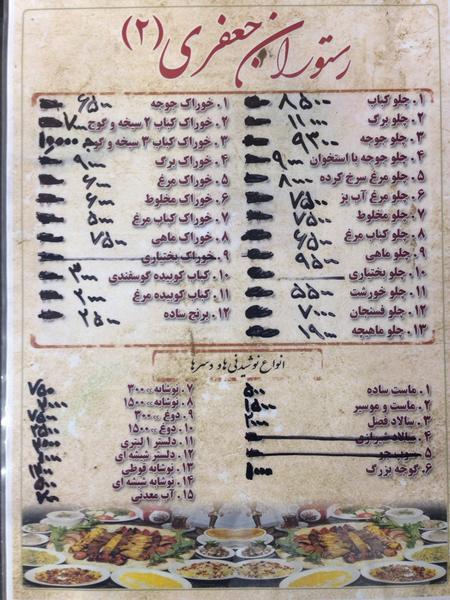 رستوران جعفری (۲)
۱. چلو کباب ۸۵۰۰
۲. چلو برگ ۱۱۰۰۰
۳. چلو جوجه ۹۳۰۰
۴. چلو جوجه با استخوان ۹۰۰۰
۵. چلو مرغ سرخ کرده ۸۰۰۰
۶. چلو مرغ آب پز ۷۵۰۰
۷. چلو مخلوط ۷۵۰۰
۸. چلو کباب مرغ ۶۵۰۰
۹. چلو ماهی ۹۵۰۰
۱۰. چلو بختیاری
۱۱. چلو خورشت ۵۵۰۰
۱۲. چلو فسنجان ۷۰۰۰
۱۳. چلو ماهیچه ۱۹۰۰۰
۱. خوراک جوجه ۶۵۰۰
۲. خوراک کباب ۲ سیخه و گوج ۷۰۰۰
۳. خوراک کباب ۳ سیخه و گوج ۱۰۰۰۰
۴. خوراک برگ ۹۰۰۰
۵. خوراک مرغ ۶۰۰۰
۶. خوراک مخلوط ۶۰۰۰
۷. خوراک کباب مرغ ۵۰۰۰
۸. خوراک ماهی ۷۵۰۰
۹. خوراک بختیاری
۱۰. کباب کوبیده گوسفندی ۳۰۰۰
۱۱. کباب کوبیده مرغ ۲۰۰۰
۱۲. برنج ساده ۲۵۰۰
انواع نوشیدنی‌ها و دسرها
۱. ماست ساده
۲. ماست و موسیر
۳. سالاد فصل
۴. سالاد شیرازی
۵. سوپ جو
۶. گوجه بزرگ
۷. نوشابه ۳۰۰cc
۸. نوشابه ۱۵۰۰cc
۹. دوغ ۳۰۰cc
۱۰. دوغ ۱۵۰۰cc
۱۱. دلستر ۱ لیتری
۱۲. دلستر شیشه ای
۱۳. نوشابه قوطی
۱۴. نوشابه شیشه ای
۱۵. آب معدنی